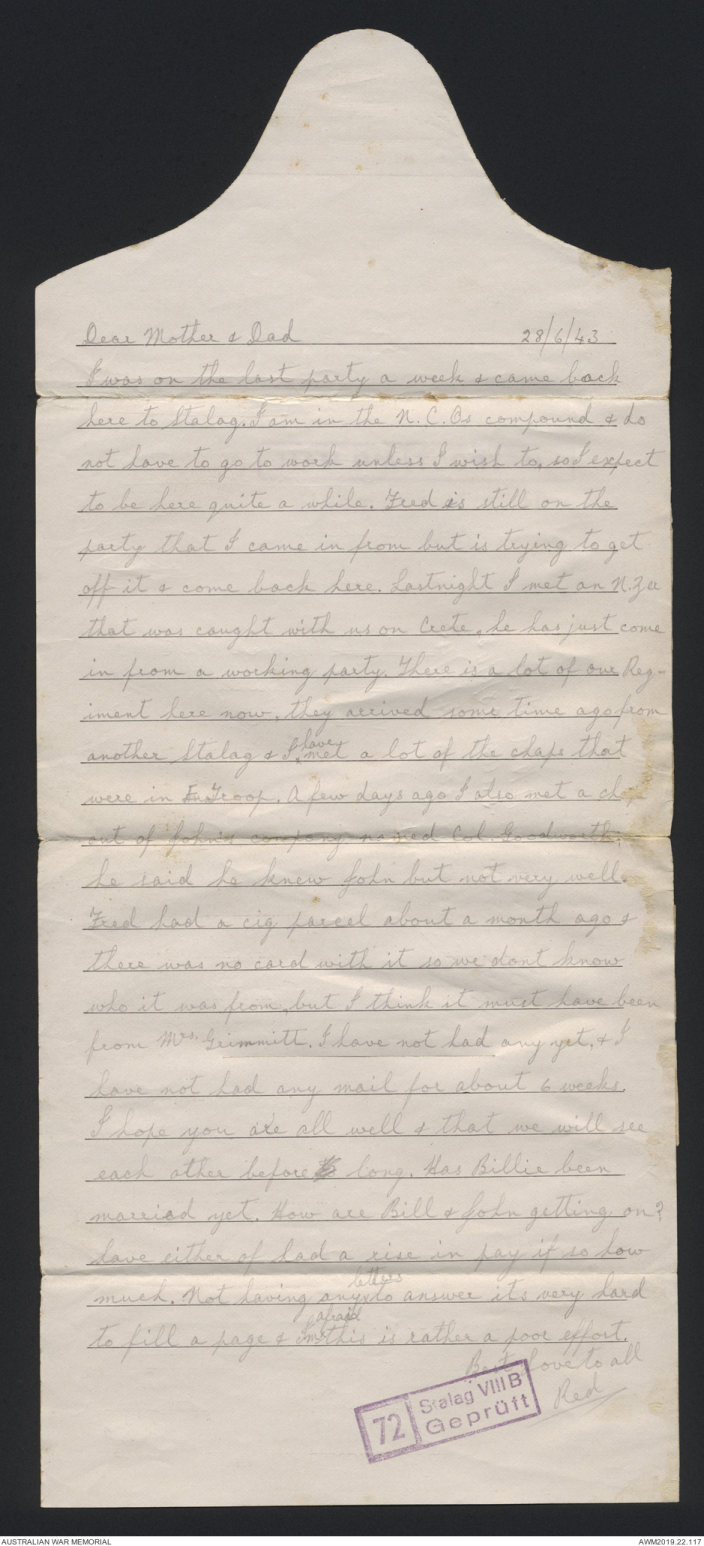 Dear Mother & Dad 28/6/43
I was on the last party a week & came back
here to Stalag. I am in the N.C.Os compound & do
not have to go to work unless I wish to, so I expect
to be here quite a while. Fred is still on the
party that I came in from but is trying to get
off it & come back here. Lastnight I met an N.Z er
that was caught with us on Crete, he has just come
in from a working party. There is a lot of our Reg-
iment here now, they arrived some time ago from
another Stalag & I have met a lot of the chaps that
were in Troop. A few days ago I also met a
out of John's company named Col. Goodworth,
he said he knew John but not very well.
Fred had a cig parcel about a month ago &
there was no card with it so we dont know
who it was from, but I think it must have been
from Mrs. Grimmitt. I have not had any yet, & I
have not had any mail for about 6 weeks.
I hope you are all well & that we will see
each other before long. Has Billie been
married yet. How are Bill & John getting on?
have either of had a rise in pay if so how
much. Not having any letters to answer its very hard
to fill a page & I'm afraid this is rather a poor effort.
Best Love to all
Red
72 Stalag VIII B
Geprüft
AUSTRALIAN WAR MEMORIAL AWM2019.22.117